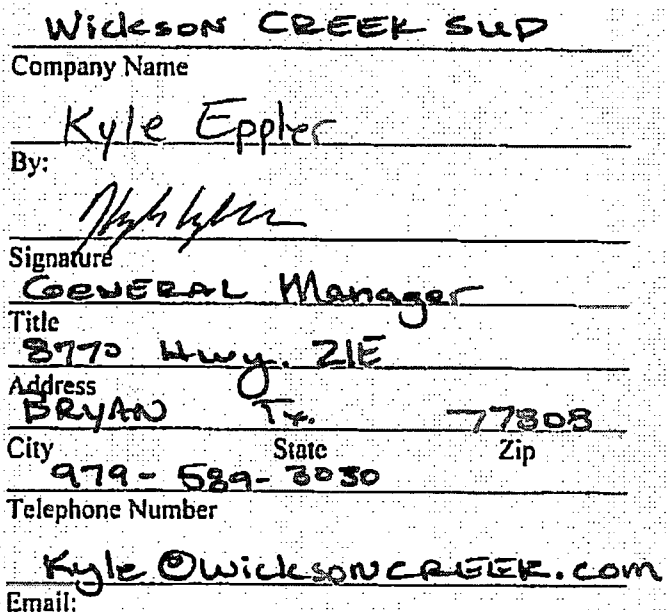 Wickson CREEK SUD
Company Name
Kyle Eppler
By:
Signature
GENERAL Manager
Title
8770 Hwy. 21E
Address
BRYAN Tx. 77808
City State Zip
979-589-3030
Telephone Number
Kyle@wicksonCREEK.com
Email: